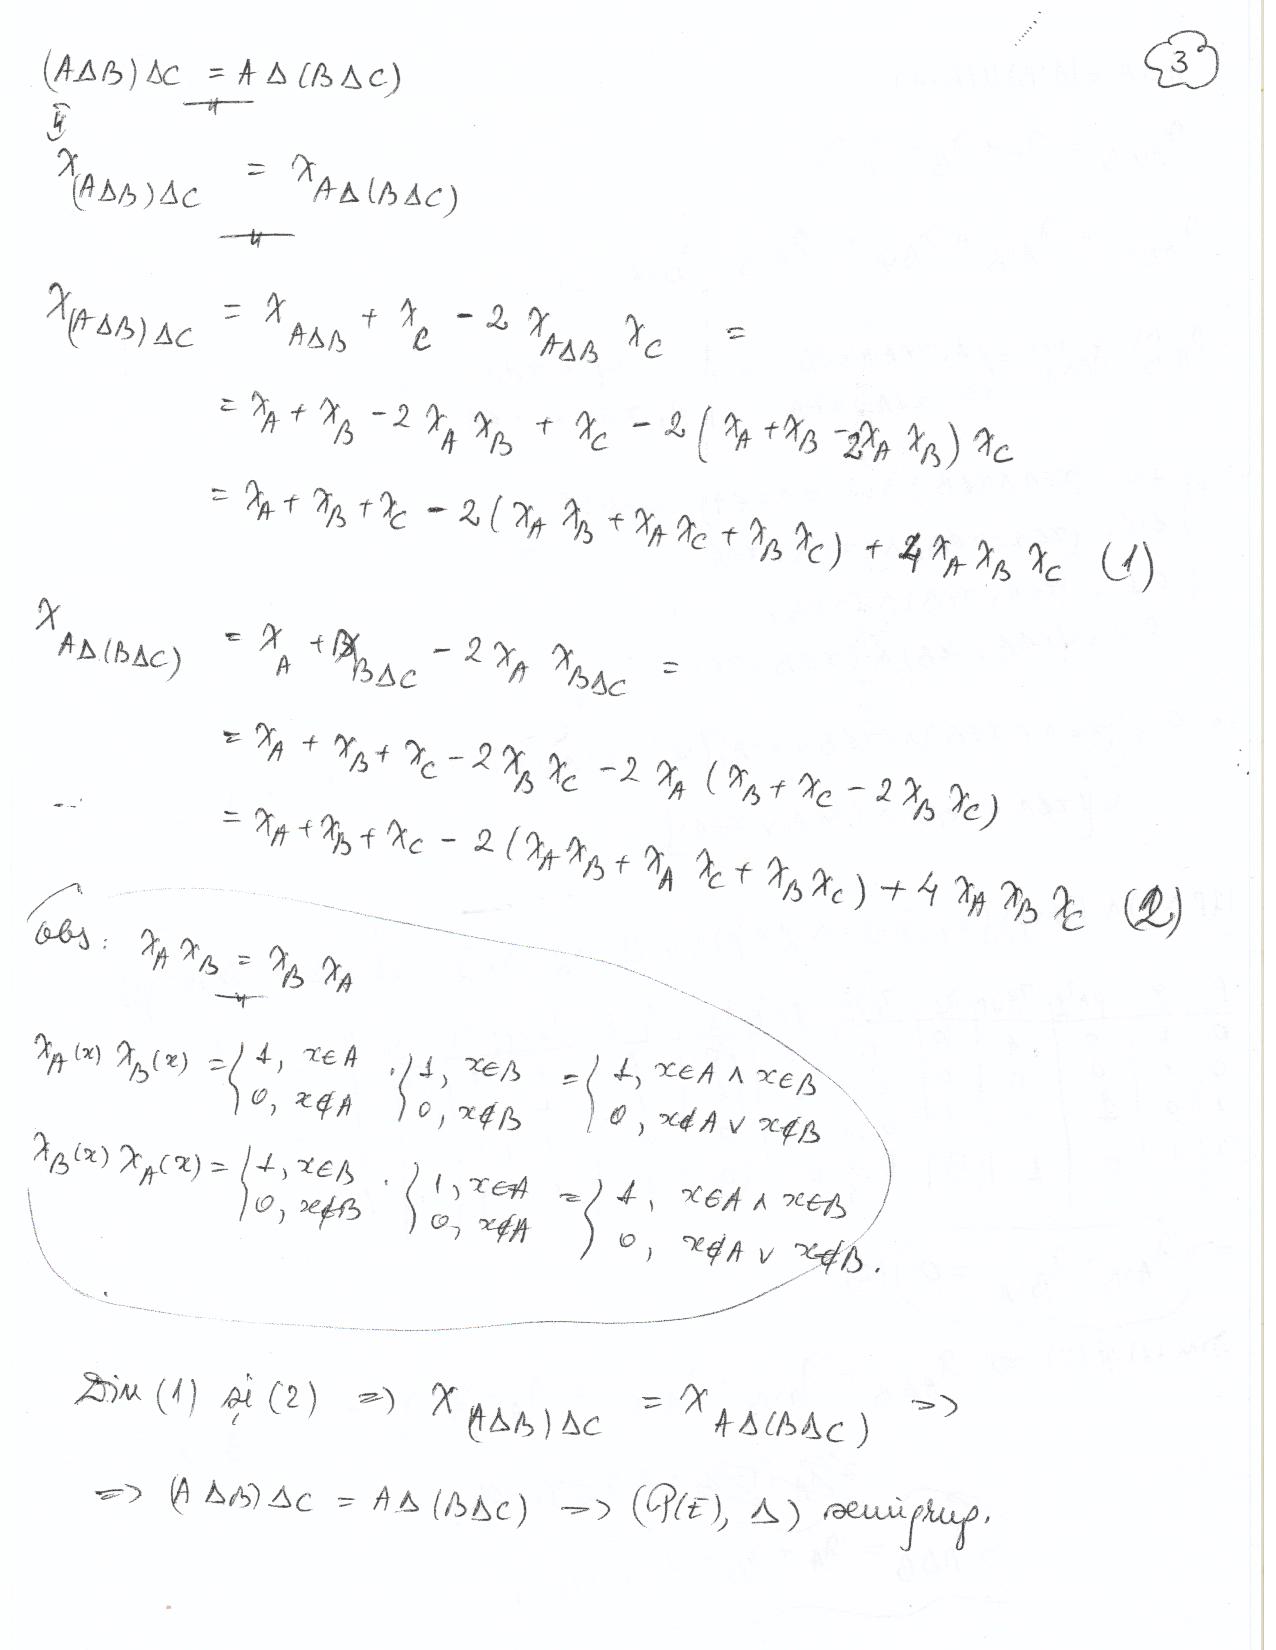 3
(AΔB)ΔC = AΔ(BΔC)
⇕
χ_{(AΔB)ΔC} = χ_{AΔ(BΔC)}
χ_{(AΔB)ΔC} = χ_{AΔB} + χ_C - 2 χ_{AΔB} χ_C =
= χ_A + χ_B - 2 χ_A χ_B + χ_C - 2 (χ_A + χ_B - 2χ_A χ_B) χ_C
= χ_A + χ_B + χ_C - 2 (χ_A χ_B + χ_A χ_C + χ_B χ_C) + 4 χ_A χ_B χ_C (1)
χ_{AΔ(BΔC)} = χ_A + χ_{BΔC} - 2 χ_A χ_{BΔC} =
= χ_A + χ_B + χ_C - 2 χ_B χ_C - 2 χ_A (χ_B + χ_C - 2 χ_B χ_C)
= χ_A + χ_B + χ_C - 2 (χ_A χ_B + χ_A χ_C + χ_B χ_C) + 4 χ_A χ_B χ_C (2)
obs: χ_A χ_B = χ_B χ_A
χ_A(x) χ_B(x) = { 1, x∈A · { 1, x∈B = { 1, x∈A ∧ x∈B
0, x∉A 0, x∉B 0, x∉A ∨ x∉B
χ_B(x) χ_A(x) = { 1, x∈B · { 1, x∈A = { 1, x∈A ∧ x∈B
0, x∉B 0, x∉A 0, x∉A ∨ x∉B.
Din (1) și (2) => χ_{(AΔB)ΔC} = χ_{AΔ(BΔC)} =>
=> (AΔB)ΔC = AΔ(BΔC) => (P(E), Δ) semigrup.